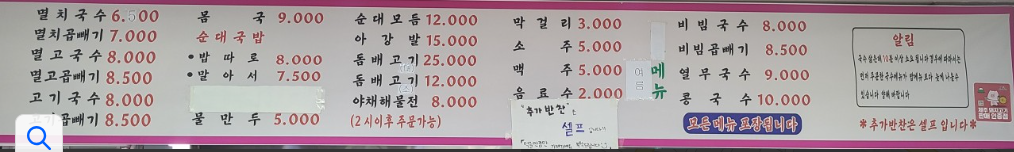 멸치국수 6.500
멸치곱빼기 7.000
멸고국수 8.000
멸고곱빼기 8.500
고기국수 8.000
고기곱빼기 8.500
몸국 9.000
순대국밥
•밥따로 8.000
•말아서 7.500
물만두 5.000
순대모듬 12.000
아강발 15.000
돔배고기 25.000
돔배고기 12.000
야채해물전 8.000
(2시이후주문가능)
막걸리 3.000
소주 5.000
맥주 5.000
음료수 2.000
"추가반찬"은
셀프
여름
메뉴
비빔국수 8.000
비빔곱빼기 8.500
열무국수 9.000
콩국수 10.000
모든메뉴 포장됩니다
알림
*추가반찬은 셀프입니다*